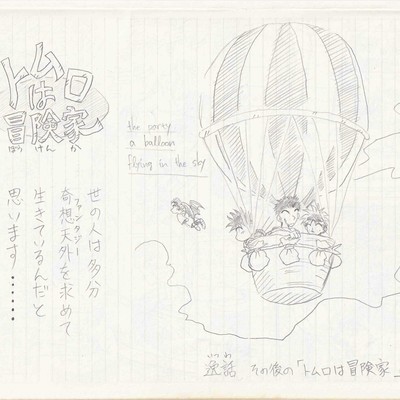 トムロは
冒険家
ぼう けん か
the party
a balloon
flying in the sky
世の人は多分
奇想天外を求めて
ファンタジー
生きているんだと
思います……
いつ わ
逸話 その後の「トムロは冒険家